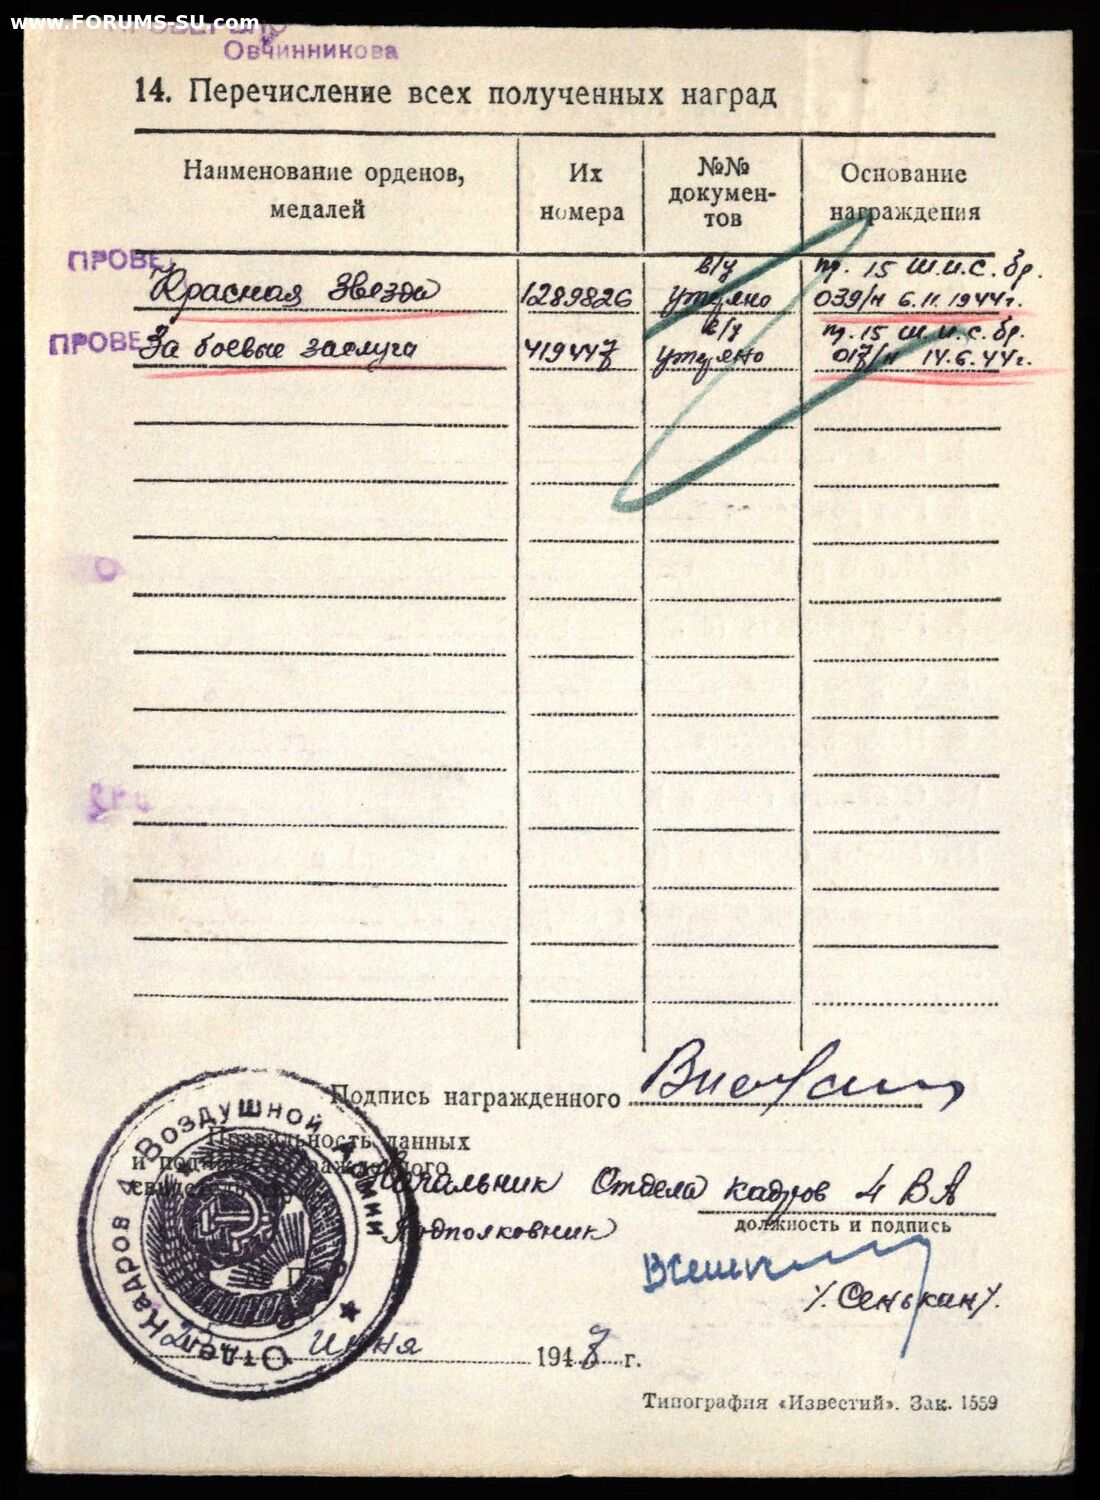 www.FORUMS-SU.com
Овчинникова
14. Перечисление всех полученных наград
Наименование орденов, медалей
Их номера
№№ докумен-
тов
Основание награждения
ПРОВЕ
в/у
пр. 15 Ш.И.С.бр.
Красная Звезда
1289826
утеряно
039/н 6.11.1944г.
ПРОВЕ
в/у
пр. 15 Ш.И.С.бр.
За боевые заслуги
419447
утеряно
017/н 14.6.44г.
Подпись награжденного
Правильность данных
и подписи награжденного
Начальник Отдела кадров 4 ВА
должность и подпись
Подполковник
/Сенькин/.
Отдел Кадров 4 Воздушной Армии
М. П.
июня 194 г.
Типография «Известий». Зак. 1559